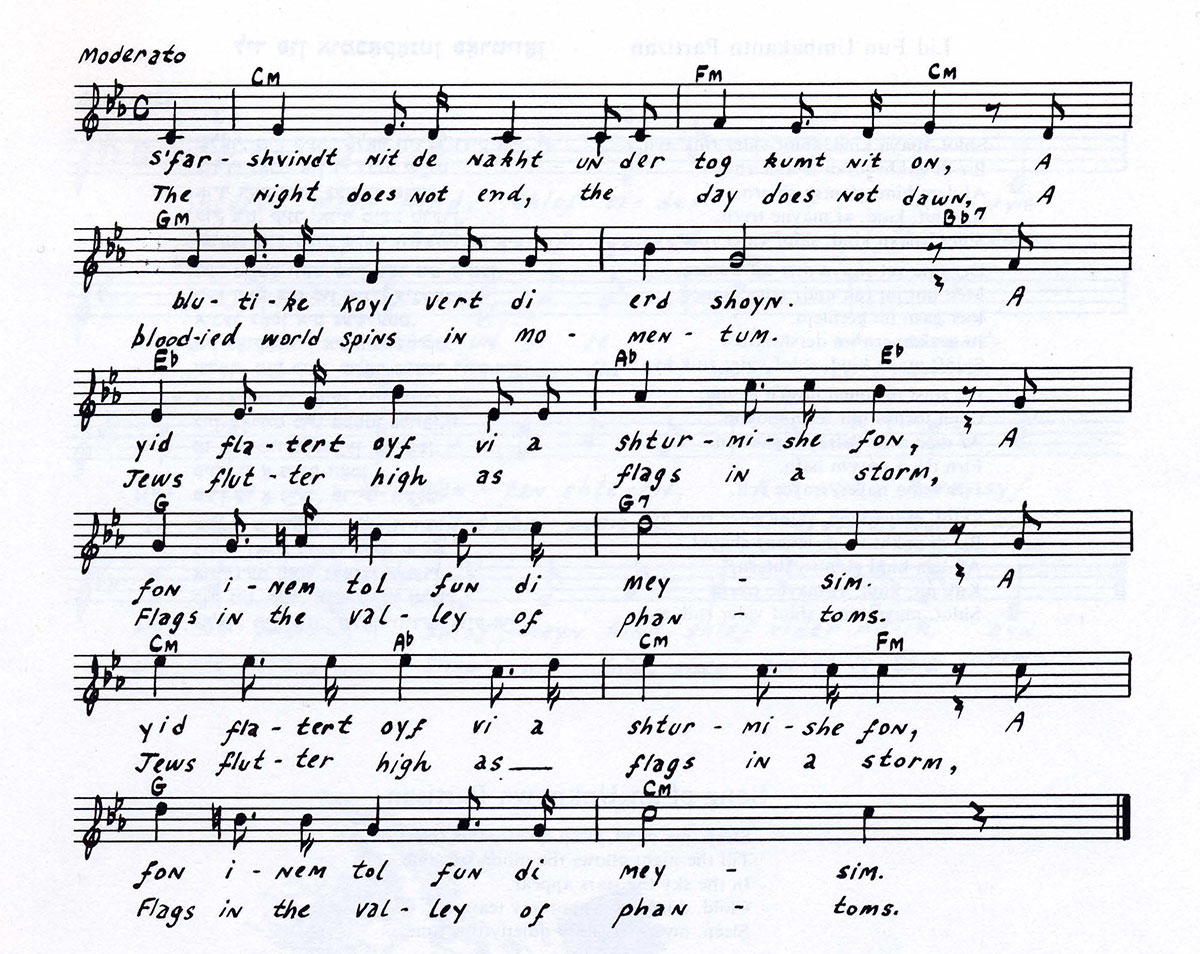 Moderato
Cm Fm Cm
S'far - shvindt nit de nakht un der tog kumt nit on, A
The night does not end, the day does not dawn, A
Gm Bb7
blu - ti - ke koyl vert di erd shoyn. A
blood-ied world spins in mo - men - tum.
Eb Ab Eb
yid fla - tert oyf vi a shtur - mi - she fon, A
Jews flut - ter high as flags in a storm,
G G7
fon i - nem tol fun di mey - sim. A
Flags in the val - ley of phan - toms.
Cm Ab Cm Fm
yid fla - tert oyf vi a shtur - mi - she fon, A
Jews flut - ter high as flags in a storm,
G Cm
fon i - nem tol fun di mey - sim.
Flags in the val - ley of phan - toms.